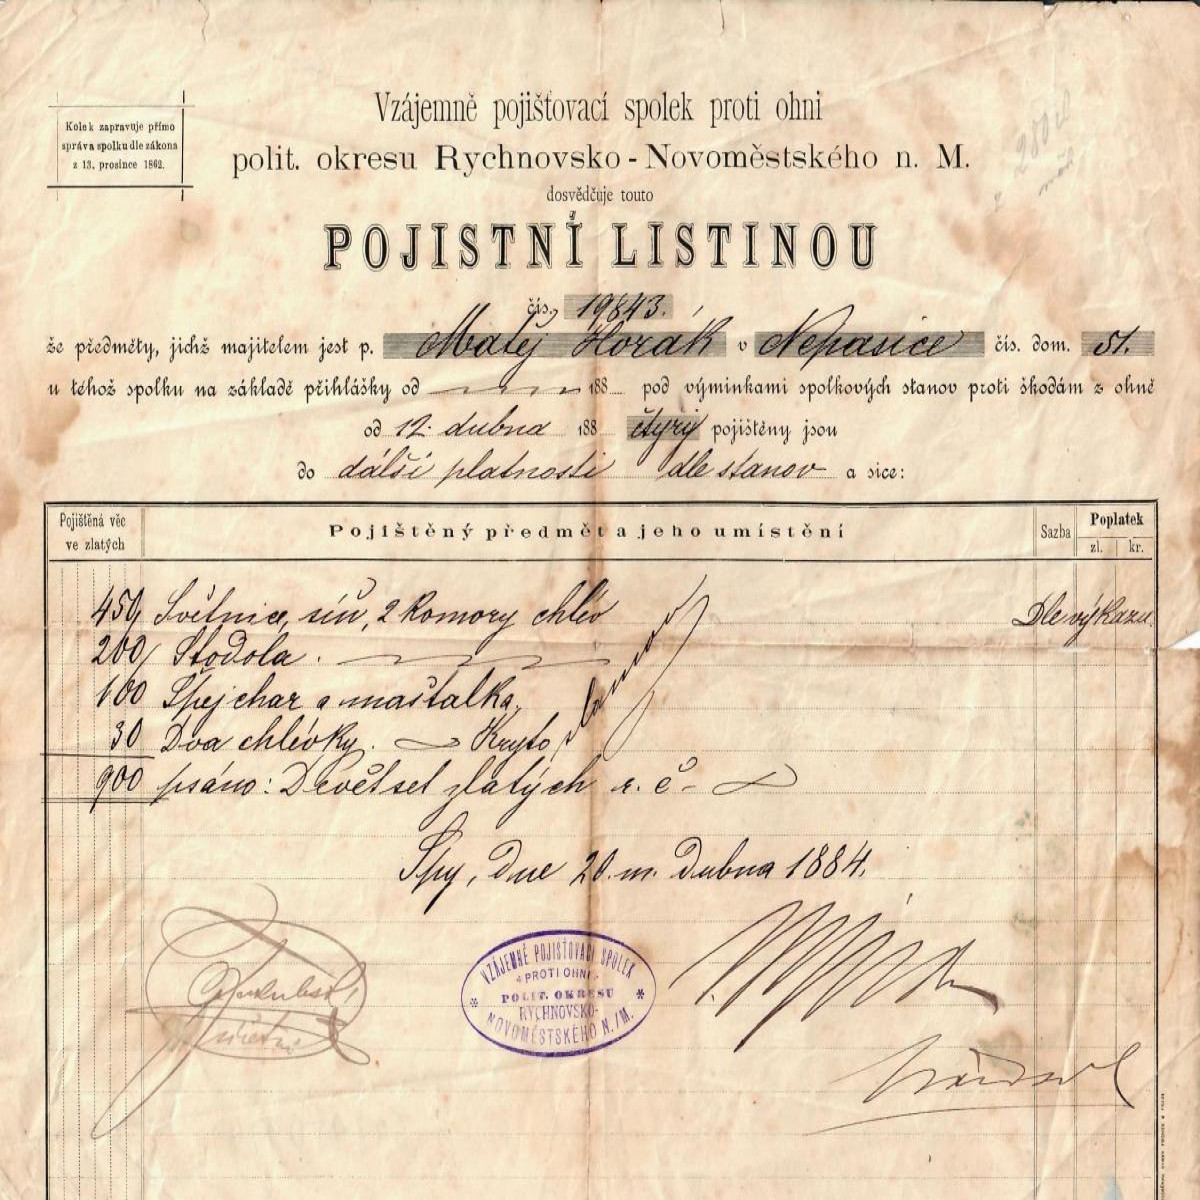 Kolek zapravuje přímo
správa spolku dle zákona
z 13. prosince 1862.
Vzájemně pojišťovací spolek proti ohni
polit. okresu Rychnovsko-Novoměstského n. M.
dosvědčuje touto
POJISTNÍ LISTINOU
čís. 19843.
že předměty, jichž majitelem jest p. Matěj Horák v Nepasice čís. dom. 51.
u téhož spolku na základě přihlášky od 188 pod výminkami spolkových stanov proti škodám z ohně
od 12. dubna 188 čtyry pojištěny jsou
do dálší platnosti dle stanov a sice:
Pojištěná věc ve zlatých
Pojištěný předmět a jeho umístění
Sazba
Poplatek
zl. kr.
Světnice, síň, 2 komory chlév Dle výkazu
200 Stodola.
100 Špejchar a maštalka.
30 Dva chlévky. Kryto slamou
900 psáno: Devětset zlatých r. č.
Spy, Dne 20. m. Dubna 1884.
VZÁJEMNĚ POJIŠŤOVACÍ SPOLEK
PROTI OHNI
POLIT. OKRESU
RYCHNOVSKO-
NOVOMĚSTSKÉHO N./M.